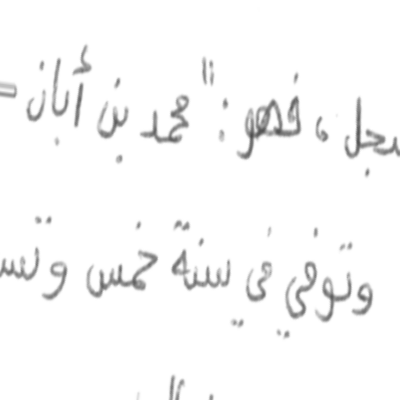 ، فهو: "محمد بن أبان =
وتوفي في سنة خمس